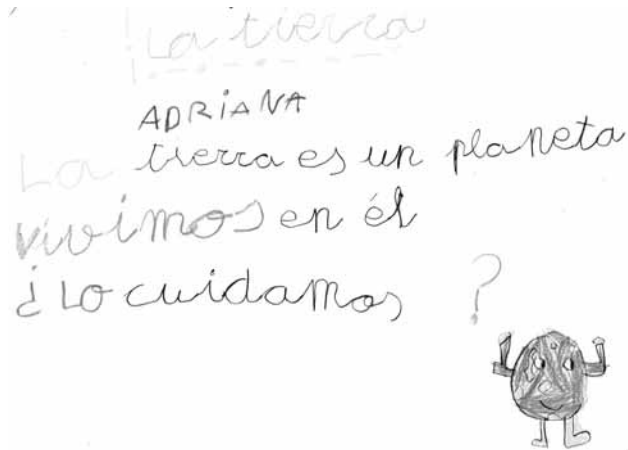 ¡La tierra
ADRIANA
La tierra es un planeta
vivimos en él
¿Lo cuidamos ?